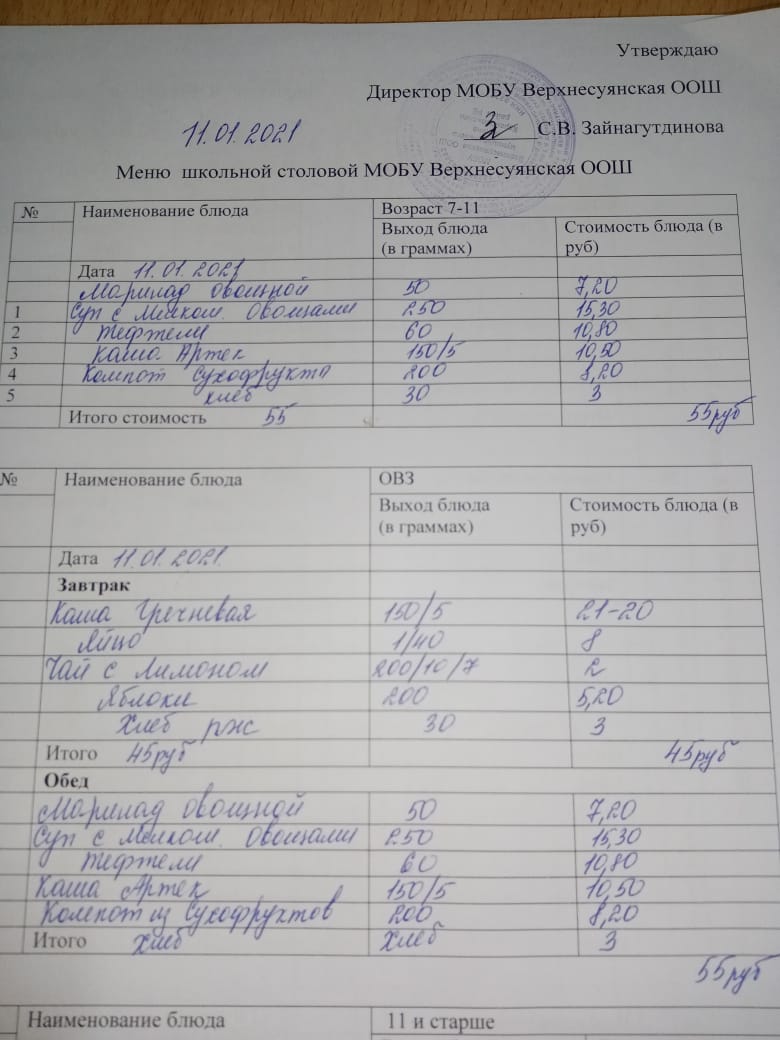 Утверждаю
Директор МОБУ Верхнесуянская ООШ
11.01.2021 С.В. Зайнагутдинова
Меню школьной столовой МОБУ Верхнесуянская ООШ
№ Наименование блюда Возраст 7-11
Выход блюда (в граммах) Стоимость блюда (в руб)
Дата 11.01.2021
Маринад овощной 50 7,20
1 Суп с Мелком. Овощами 250 15,30
2 Тефтели 60 10,80
3 Каша Артек 150/5 10,50
4 Компот Сухофрукта 200 8,20
5 хлеб 30 3
Итого стоимость 55 55руб
№ Наименование блюда ОВЗ
Выход блюда (в граммах) Стоимость блюда (в руб)
Дата 11.01.2021.
Завтрак
Каша Гречневая 150/5 21-20
Яйцо 1/40 8
Чай с Лимоном 200/10/7 2
Яблоки 200 5,20
Хлеб рж 30 3
Итого 45руб 45руб
Обед
Маринад овощной 50 7,20
Суп с Мелком. Овощами 250 15,30
Тефтели 60 10,80
Каша Артек 150/5 10,50
Компот из Сухофруктов 200 8,20
Итого хлеб хлеб 3
55руб
Наименование блюда 11 и старше